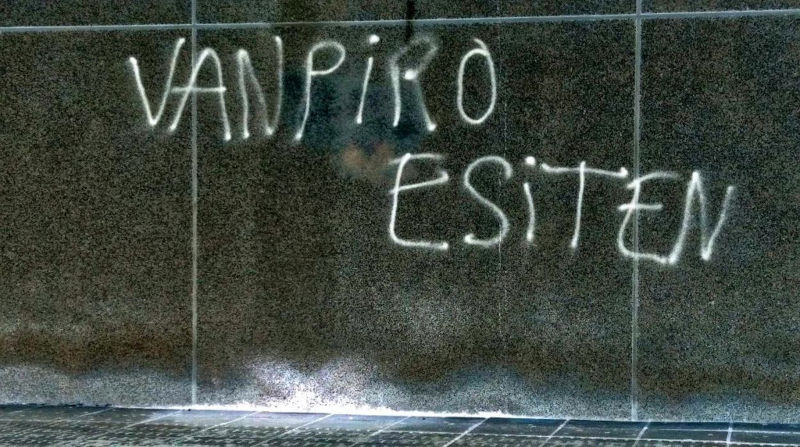 VANPiRO
ESiTEN